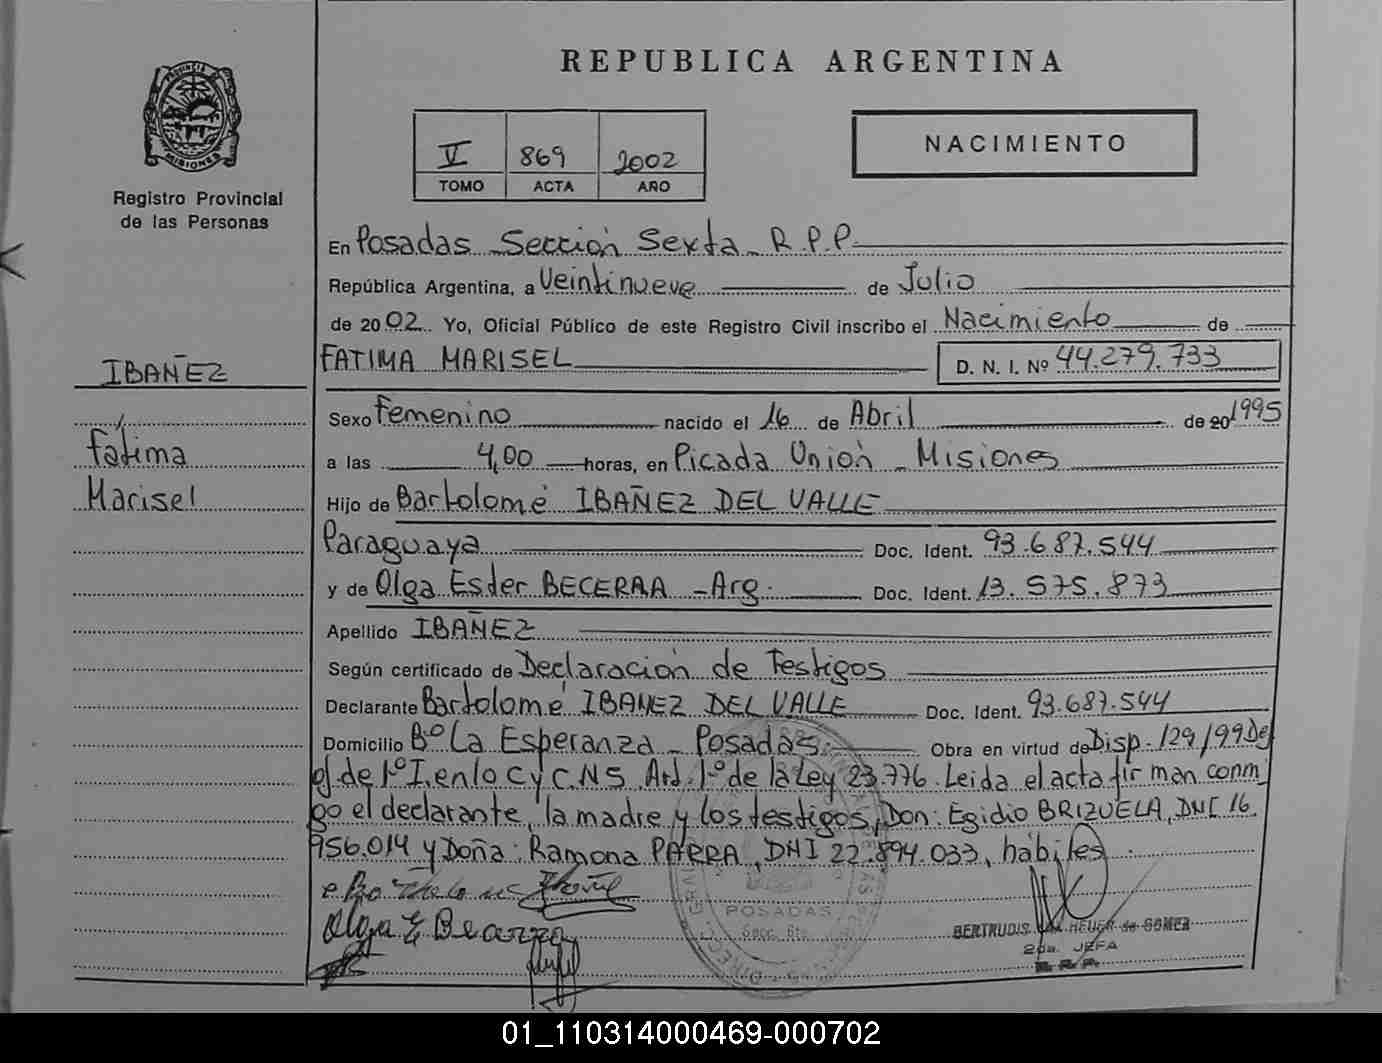 REPUBLICA ARGENTINA
PROVINCIA DE MISIONES
Registro Provincial
de las Personas
V 869 2002
TOMO ACTA AÑO
NACIMIENTO
En Posadas Sección Sexta R.P.P.
República Argentina, a Veintinueve de Julio
de 2002. Yo, Oficial Público de este Registro Civil inscribo el Nacimiento de
FATIMA MARISEL D. N. I. Nº 44.279.733
IBAÑEZ
Fátima
Marisel
Sexo Femenino nacido el 16 de Abril de 20 1995
a las 4,00 horas, en Picada Unión - Misiones
Hijo de Bartolomé IBAÑEZ DEL VALLE
Paraguaya Doc. Ident. 93.687.544
y de Olga Ester BECERRA - Arg. Doc. Ident. 13.575.873
Apellido IBAÑEZ
Según certificado de Declaración de Testigos
Declarante Bartolomé IBAÑEZ DEL VALLE Doc. Ident. 93.687.544
Domicilio Bº La Esperanza - Posadas. Obra en virtud de Disp. 129/99 De
ef. de 1º I. en lo C y C. N 5. Art. 1º de la Ley 23.776. Leida el acta firman conmi
go el declarante, la madre y los testigos, Don: Egidio BRIZUELA, DNI 16
956.014 y Doña: Ramona PARRA, DNI 22.894.033, hábiles
Olga E Becerra
POSADAS
Secc. 6ta.
BERTRUDIS HEUER de GOMEZ
2da. JEFA
R.P.P.
01_110314000469-000702